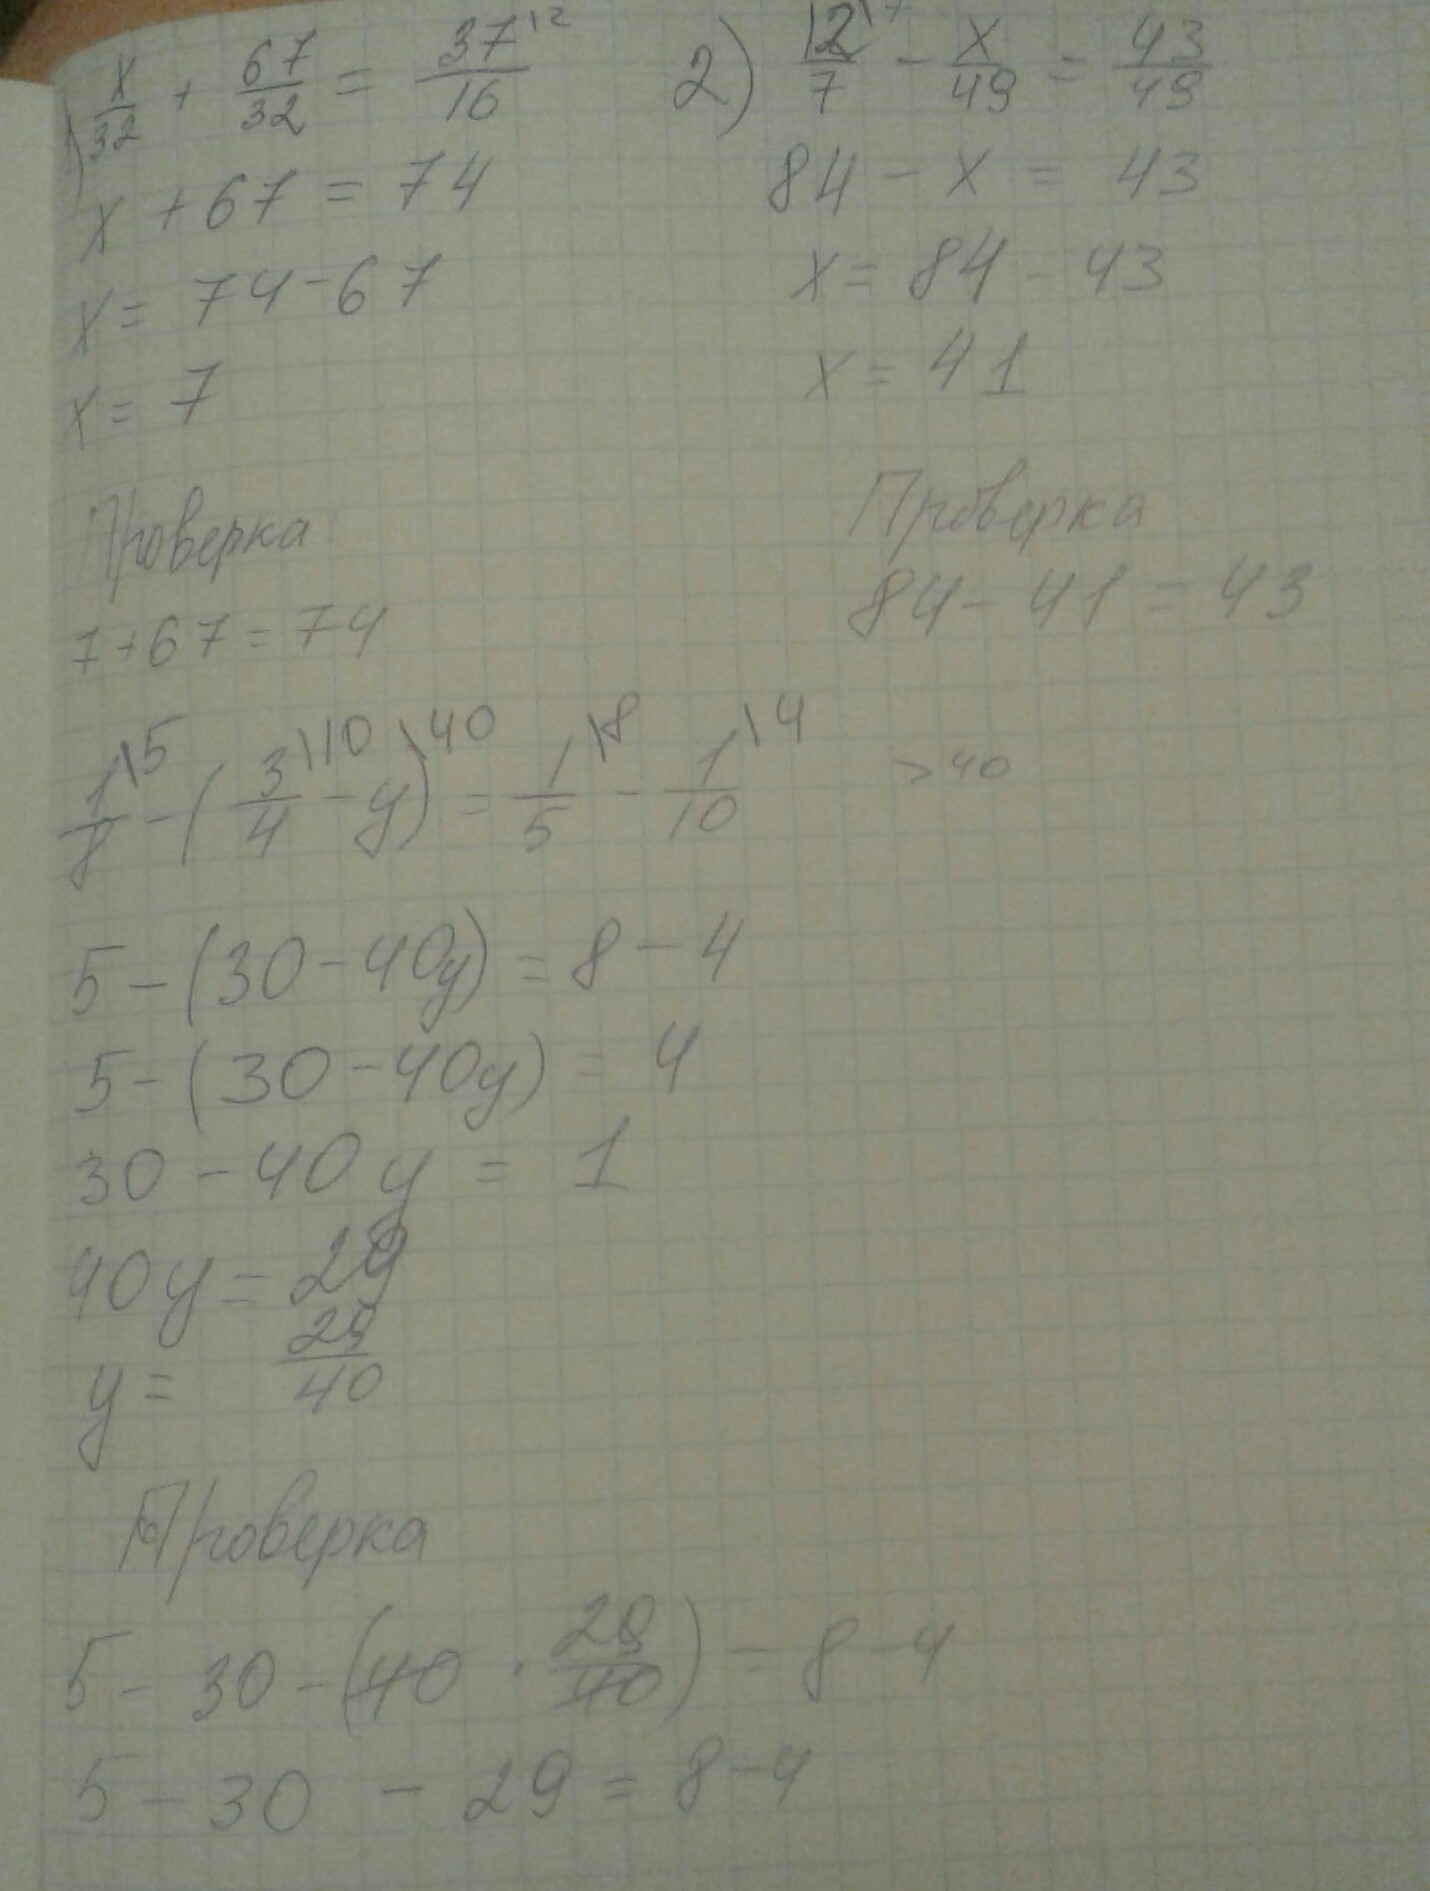 1) x/32 + 67/32 = 37\2/16
x + 67 = 74
x = 74 - 67
x = 7
Проверка
7 + 67 = 74
2) 12\7/7 - x/49 = 43/49
84 - x = 43
x = 84 - 43
x = 41
Проверка
84 - 41 = 43
1\5/8 - (3\10/4 - y)\40 = 1\8/5 - 1\4/10 > 40
5 - (30 - 40y) = 8 - 4
5 - (30 - 40y) = 4
30 - 40y = 1
40y = 29
y = 29/40
Проверка
5 - 30 - (40 · 29/40) = 8 - 4
5 - 30 - 29 = 8 - 4